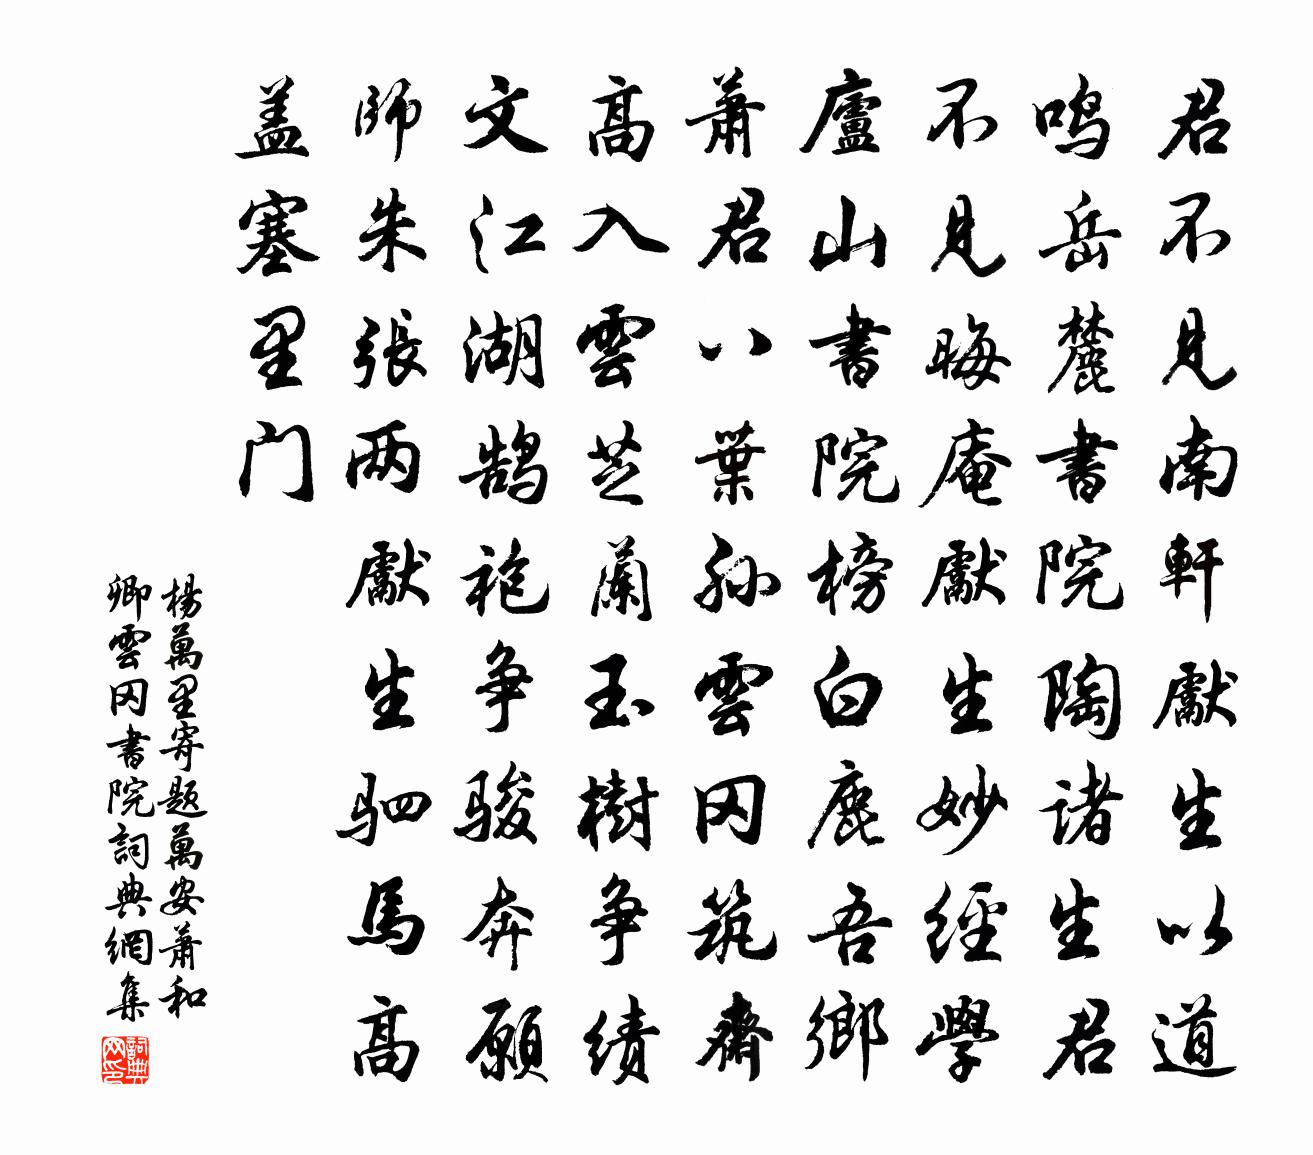 君不見南軒獻生以道
鸣岳麓書院陶诸生君
不見晦庵獻生妙經學
廬山書院榜白鹿吾鄉
萧君八葉孙雲冈筑齋
高入雲芝蘭玉樹争绩
文江湖鹄袍争骏奔願
師朱張两獻生驷馬高
盖塞里门
楊萬里寄題萬安萧和
卿雲冈書院詞典網集
詞典网印